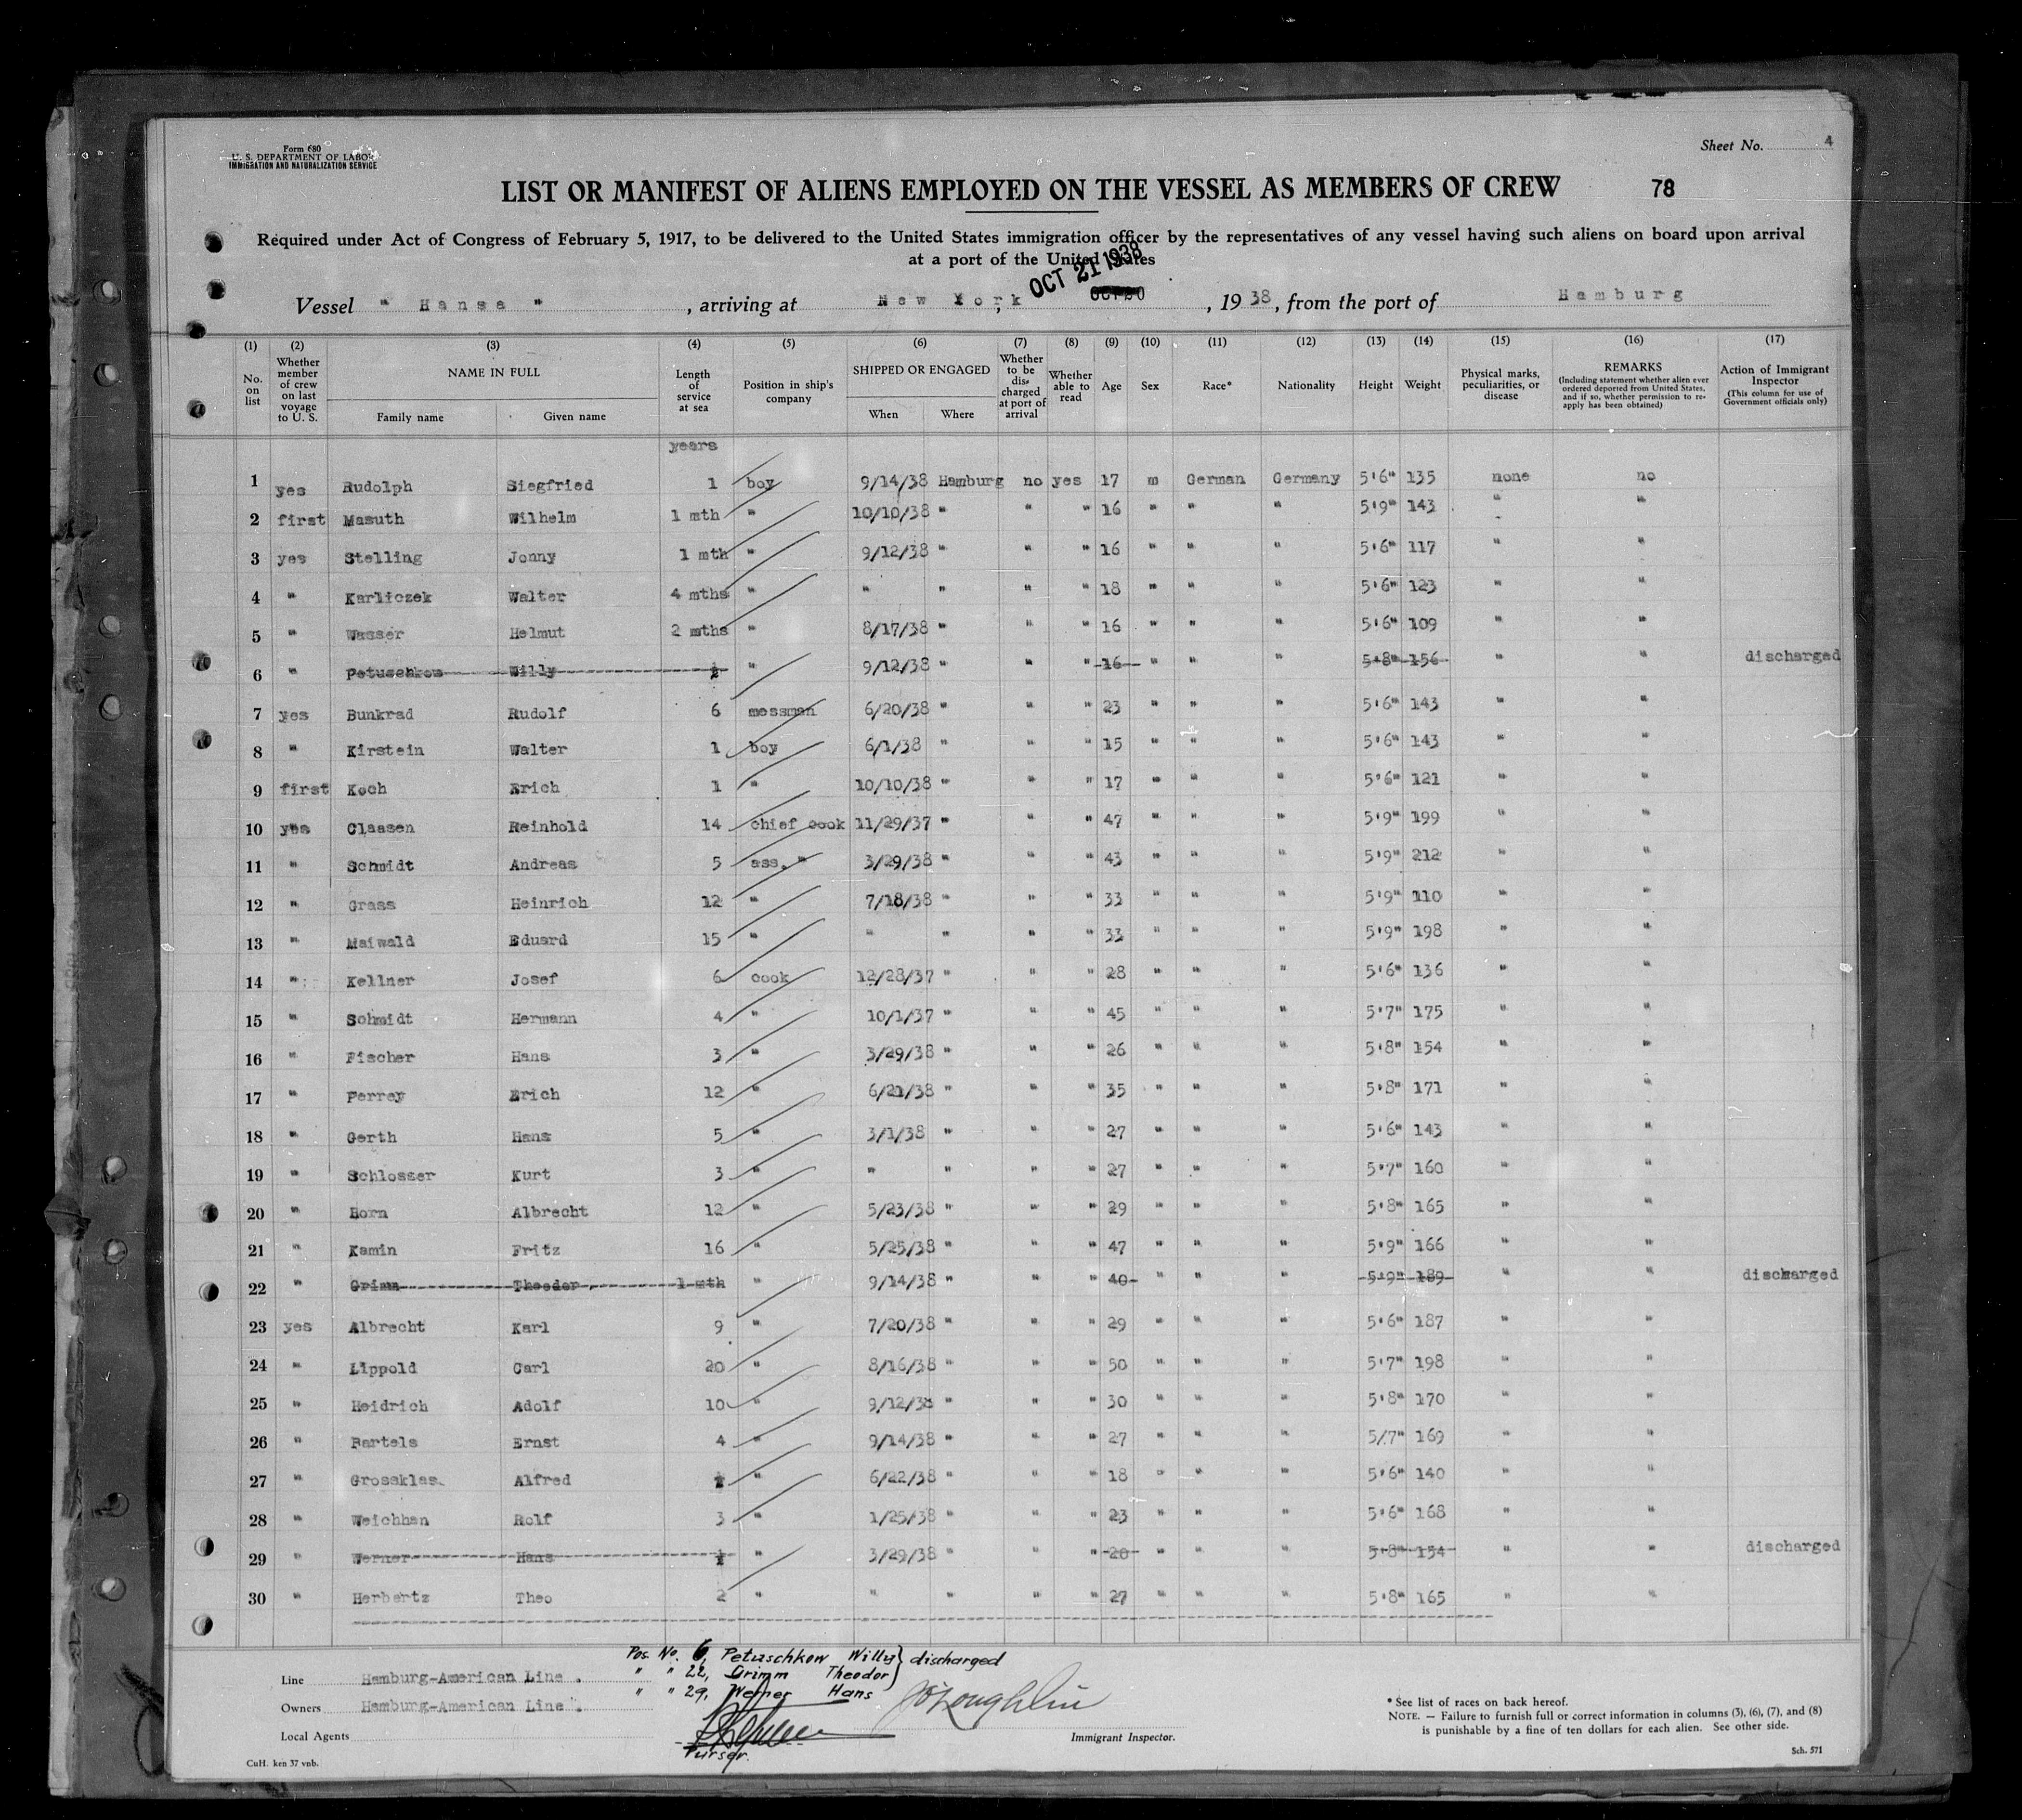 Form 680
U. S. DEPARTMENT OF LABOR
IMMIGRATION AND NATURALIZATION SERVICE
Sheet No. 4
LIST OR MANIFEST OF ALIENS EMPLOYED ON THE VESSEL AS MEMBERS OF CREW 78
Required under Act of Congress of February 5, 1917, to be delivered to the United States immigration officer by the representatives of any vessel having such aliens on board upon arrival
at a port of the United States
OCT 21 1938
Vessel " Hansa " , arriving at New York, , 19 38, from the port of Hamburg
(1) (2) (3) (4) (5) (6) (7) (8) (9) (10) (11) (12) (13) (14) (15) (16) (17)
No. on list
Whether member of crew on last voyage to U. S.
NAME IN FULL
Family name
Given name
Length of service at sea
Position in ship's company
SHIPPED OR ENGAGED
When
Where
Whether to be discharged at port of arrival
Whether able to read
Age
Sex
Race*
Nationality
Height
Weight
Physical marks, peculiarities, or disease
REMARKS
(Including statement whether alien ever ordered deported from United States, and if so, whether permission to reapply has been obtained)
Action of Immigrant Inspector
(This column for use of Government officials only)
years
1 yes Rudolph Siegfried 1 boy 9/14/38 Hamburg no yes 17 m German Germany 5'6" 135 none no
2 first Masuth Wilhelm 1 mth " 10/10/38 " " " 16 " " " 5'9" 143 " "
3 yes Stelling Jonny 1 mth " 9/12/38 " " " 16 " " " 5'6" 117 " "
4 " Karliczek Walter 4 mths " " " " " 18 " " " 5'6" 123 " "
5 " Wasser Helmut 2 mths " 8/17/38 " " " 16 " " " 5'6" 109 " "
6 " Petuschkow Willy " 9/12/38 " " " 16 " " " 5'8" 156 " " discharged
7 yes Bunkrad Rudolf 6 messman 6/20/38 " " " 23 " " " 5'6" 143 " "
8 " Kirstein Walter 1 boy 6/1/38 " " " 15 " " " 5'6" 143 " "
9 first Koch Erich 1 " 10/10/38 " " " 17 " " " 5'6" 121 " "
10 yes Claasen Reinhold 14 chief cook 11/29/37 " " " 47 " " " 5'9" 199 " "
11 " Schmidt Andreas 5 ass. " 3/29/38 " " " 43 " " " 5'9" 212 " "
12 " Grass Heinrich 12 " 7/18/38 " " " 33 " " " 5'9" 110 " "
13 " Maiwald Eduard 15 " " " " " 33 " " " 5'9" 198 " "
14 " Kellner Josef 6 cook 12/28/37 " " " 28 " " " 5'6" 136 " "
15 " Schmidt Hermann 4 " 10/1/37 " " " 45 " " " 5'7" 175 " "
16 " Fischer Hans 3 " 3/29/38 " " " 26 " " " 5'8" 154 " "
17 " Perrey Erich 12 " 6/21/38 " " " 35 " " " 5'8" 171 " "
18 " Gerth Hans 5 " 3/1/38 " " " 27 " " " 5'6" 143 " "
19 " Schlosser Kurt 3 " " " " " 27 " " " 5'7" 160 " "
20 " Horn Albrecht 12 " 5/23/38 " " " 29 " " " 5'8" 165 " "
21 " Kamin Fritz 16 " 5/25/38 " " " 47 " " " 5'9" 166 " "
22 " Grimm Theodor 1 mth " 9/14/38 " " " 40 " " " 5'9" 189 " " discharged
23 yes Albrecht Karl 9 " 7/20/38 " " " 29 " " " 5'6" 187 " "
24 " Lippold Carl 20 " 8/16/38 " " " 50 " " " 5'7" 198 " "
25 " Heidrich Adolf 10 " 9/12/38 " " " 30 " " " 5'8" 170 " "
26 " Bartels Ernst 4 " 9/14/38 " " " 27 " " " 5/7" 169 " "
27 " Grossklas Alfred " 6/22/38 " " " 18 " " " 5'6" 140 " "
28 " Weichhan Rolf 3 " 1/25/38 " " " 23 " " " 5'6" 168 " "
29 " Werner Hans " 3/29/38 " " " 20 " " " 5'8" 154 " " discharged
30 " Herbertz Theo 2 " " " " " 27 " " " 5'8" 165 " "
Pos. No. 6, Petuschkow Willy } discharged
" " 22, Grimm Theodor
" " 29, Werner Hans
Line Hamburg-American Line .
Owners Hamburg-American Line .
Local Agents
Purser.
J O'Loughlin
Immigrant Inspector.
* See list of races on back hereof.
NOTE. — Failure to furnish full or correct information in columns (3), (6), (7), and (8)
is punishable by a fine of ten dollars for each alien. See other side.
CuH. ken 37 vnb.
Sch. 571